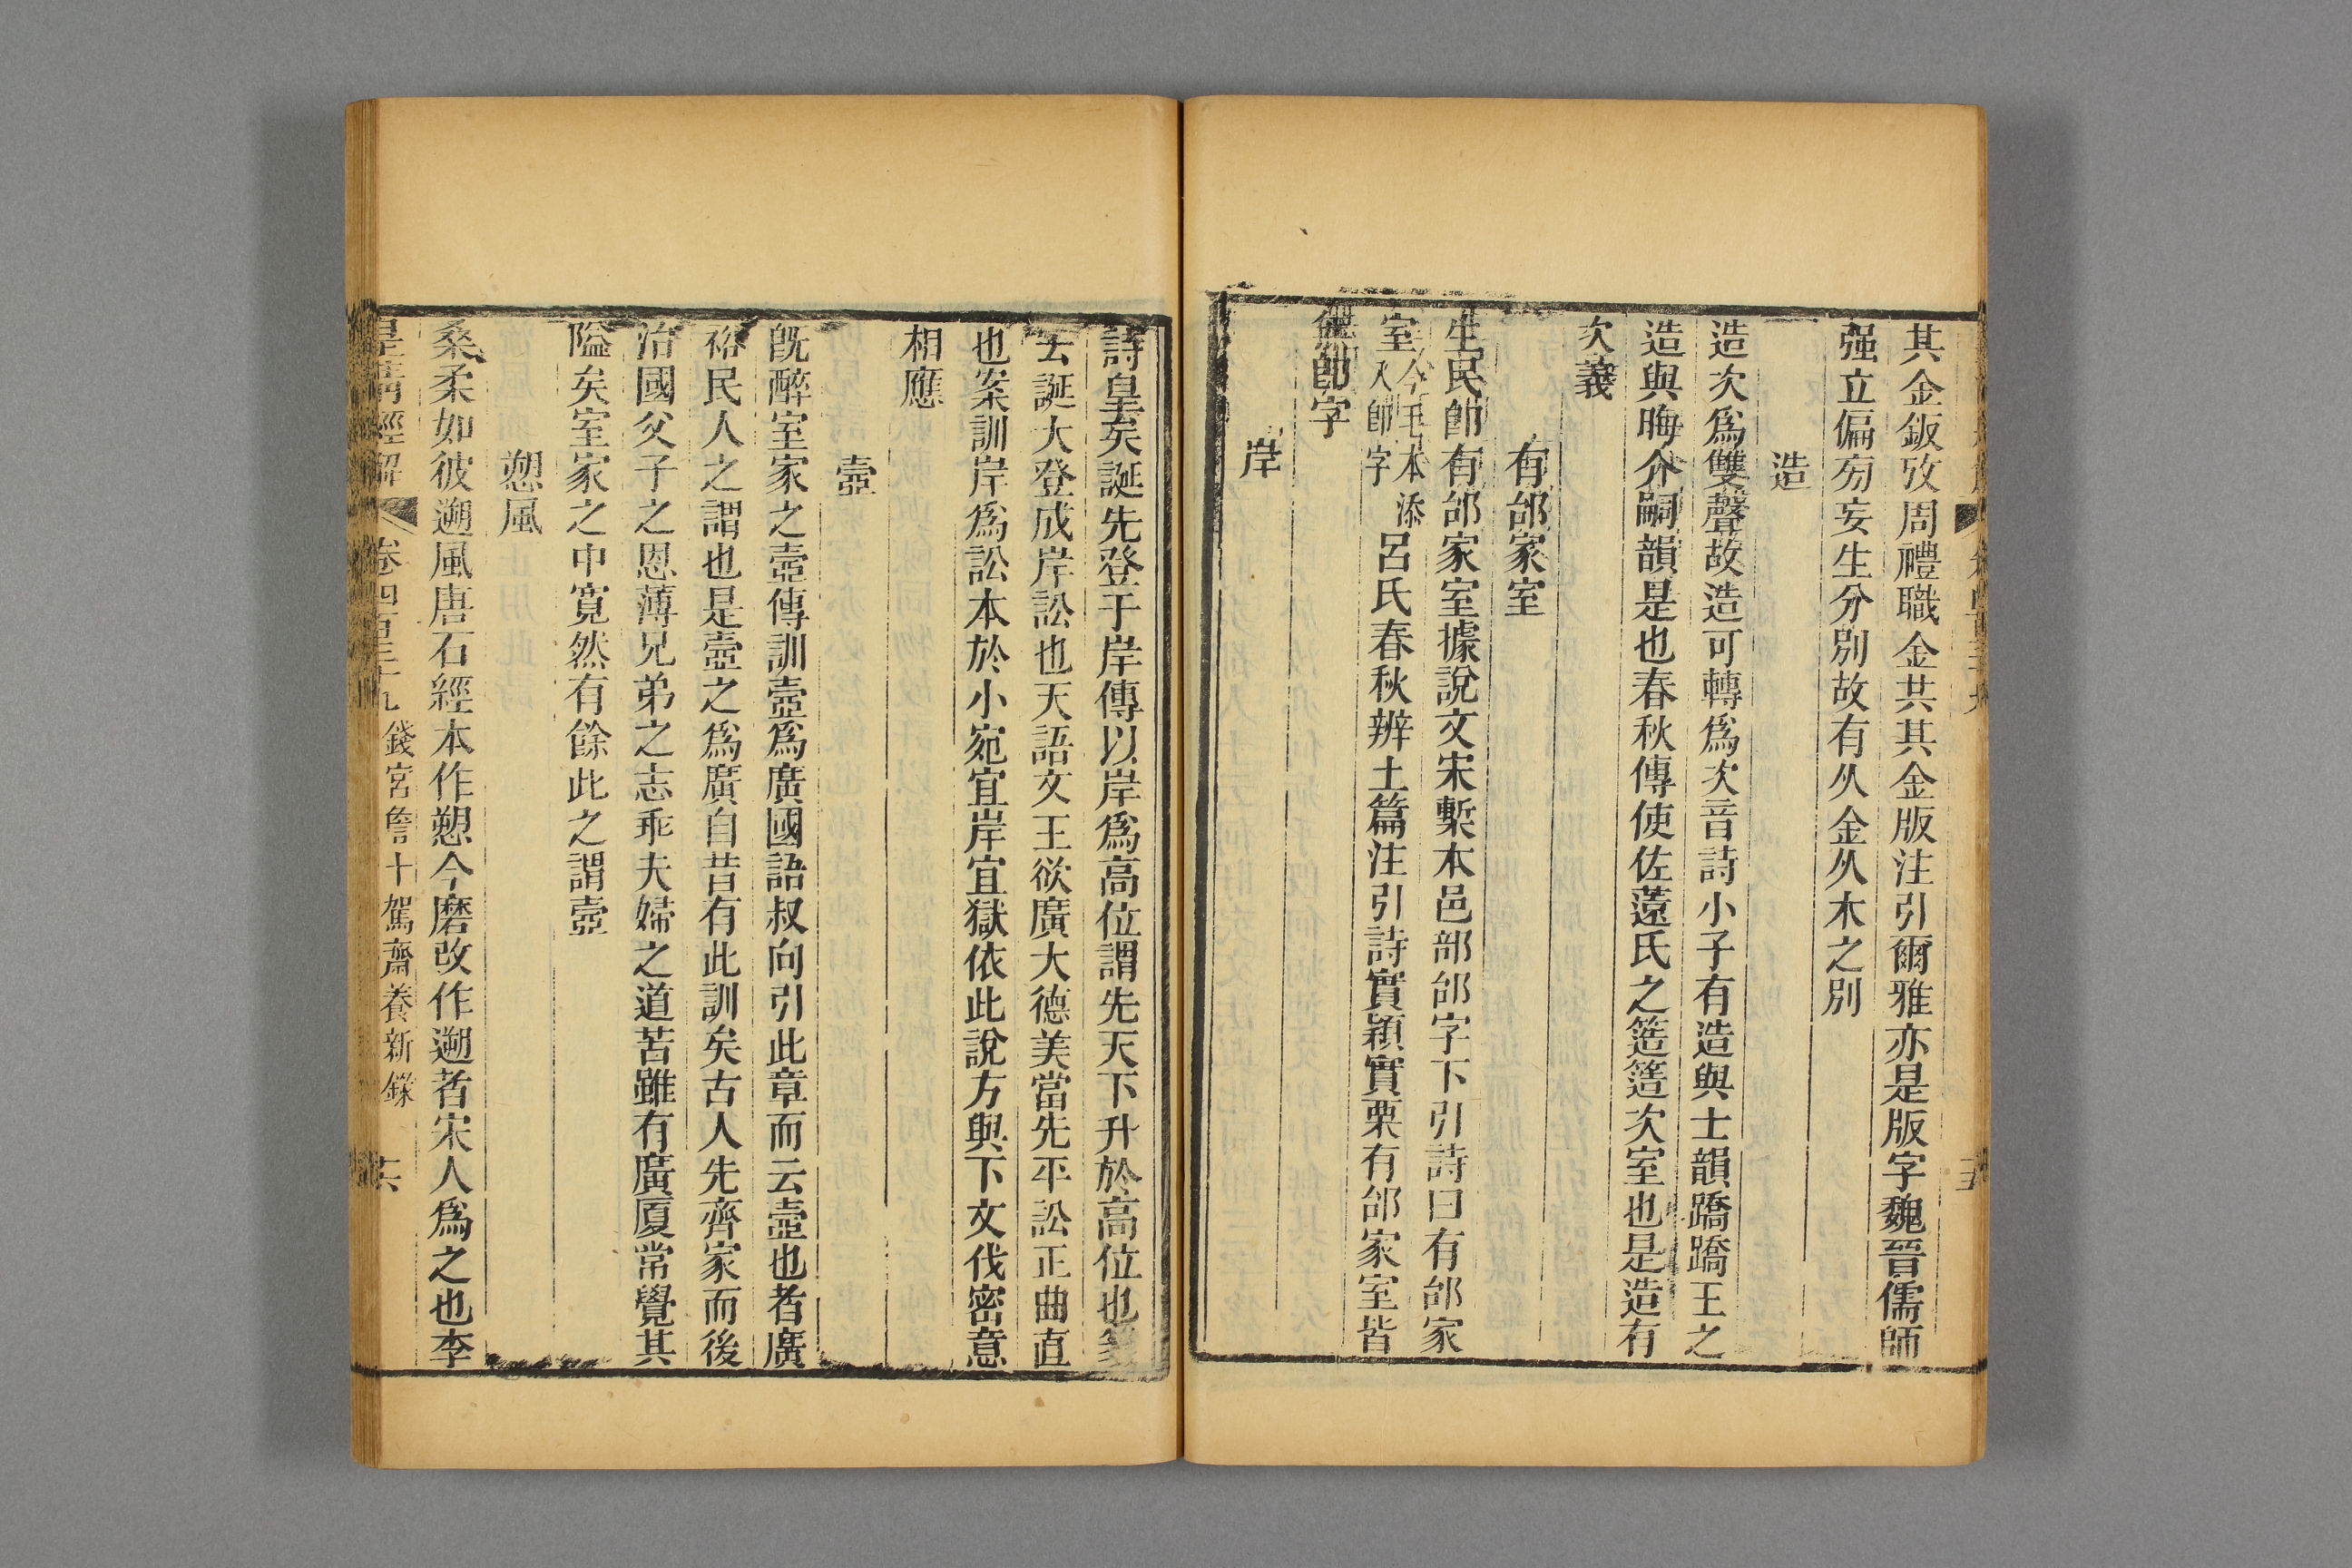 其金鈑攷周禮職金共其金版注引爾雅亦是版字魏晉儒師
强立偏旁妄生分別故有从金从木之別
造
造次爲雙聲故造可轉爲次音詩小子有造與士韻蹻蹻王之
造與晦介嗣韻是也春秋傳使佐薳氏之簉簉次室也是造有
次義
有邰家室
生民卽有邰家室據說文宋槧本邑部邰字下引詩曰有邰家
室今毛本添入卽字呂氏春秋辨土篇注引詩實穎實栗有邰家室皆
無卽字
岸
詩皇矣誕先登于岸傳以岸爲高位謂先天下升於高位也箋
云誕大登成岸訟也天語文王欲廣大德美當先平訟正曲直
也案訓岸爲訟本於小宛宜岸宜獄依此說方與下文伐密意
相應
壼
旣醉室家之壼傳訓壼爲廣國語叔向引此章而云壼也者廣
裕民人之謂也是壼之爲廣自昔有此訓矣古人先齊家而後
治國父子之恩薄兄弟之志乖夫婦之道苦雖有廣厦常覺其
隘矣室家之中寬然有餘此之謂壼
愬風
桑柔如彼遡風唐石經本作愬今磨改作遡者宋人爲之也李
皇淸經解 卷四百三十九 錢宮詹十駕齋養新錄 十六